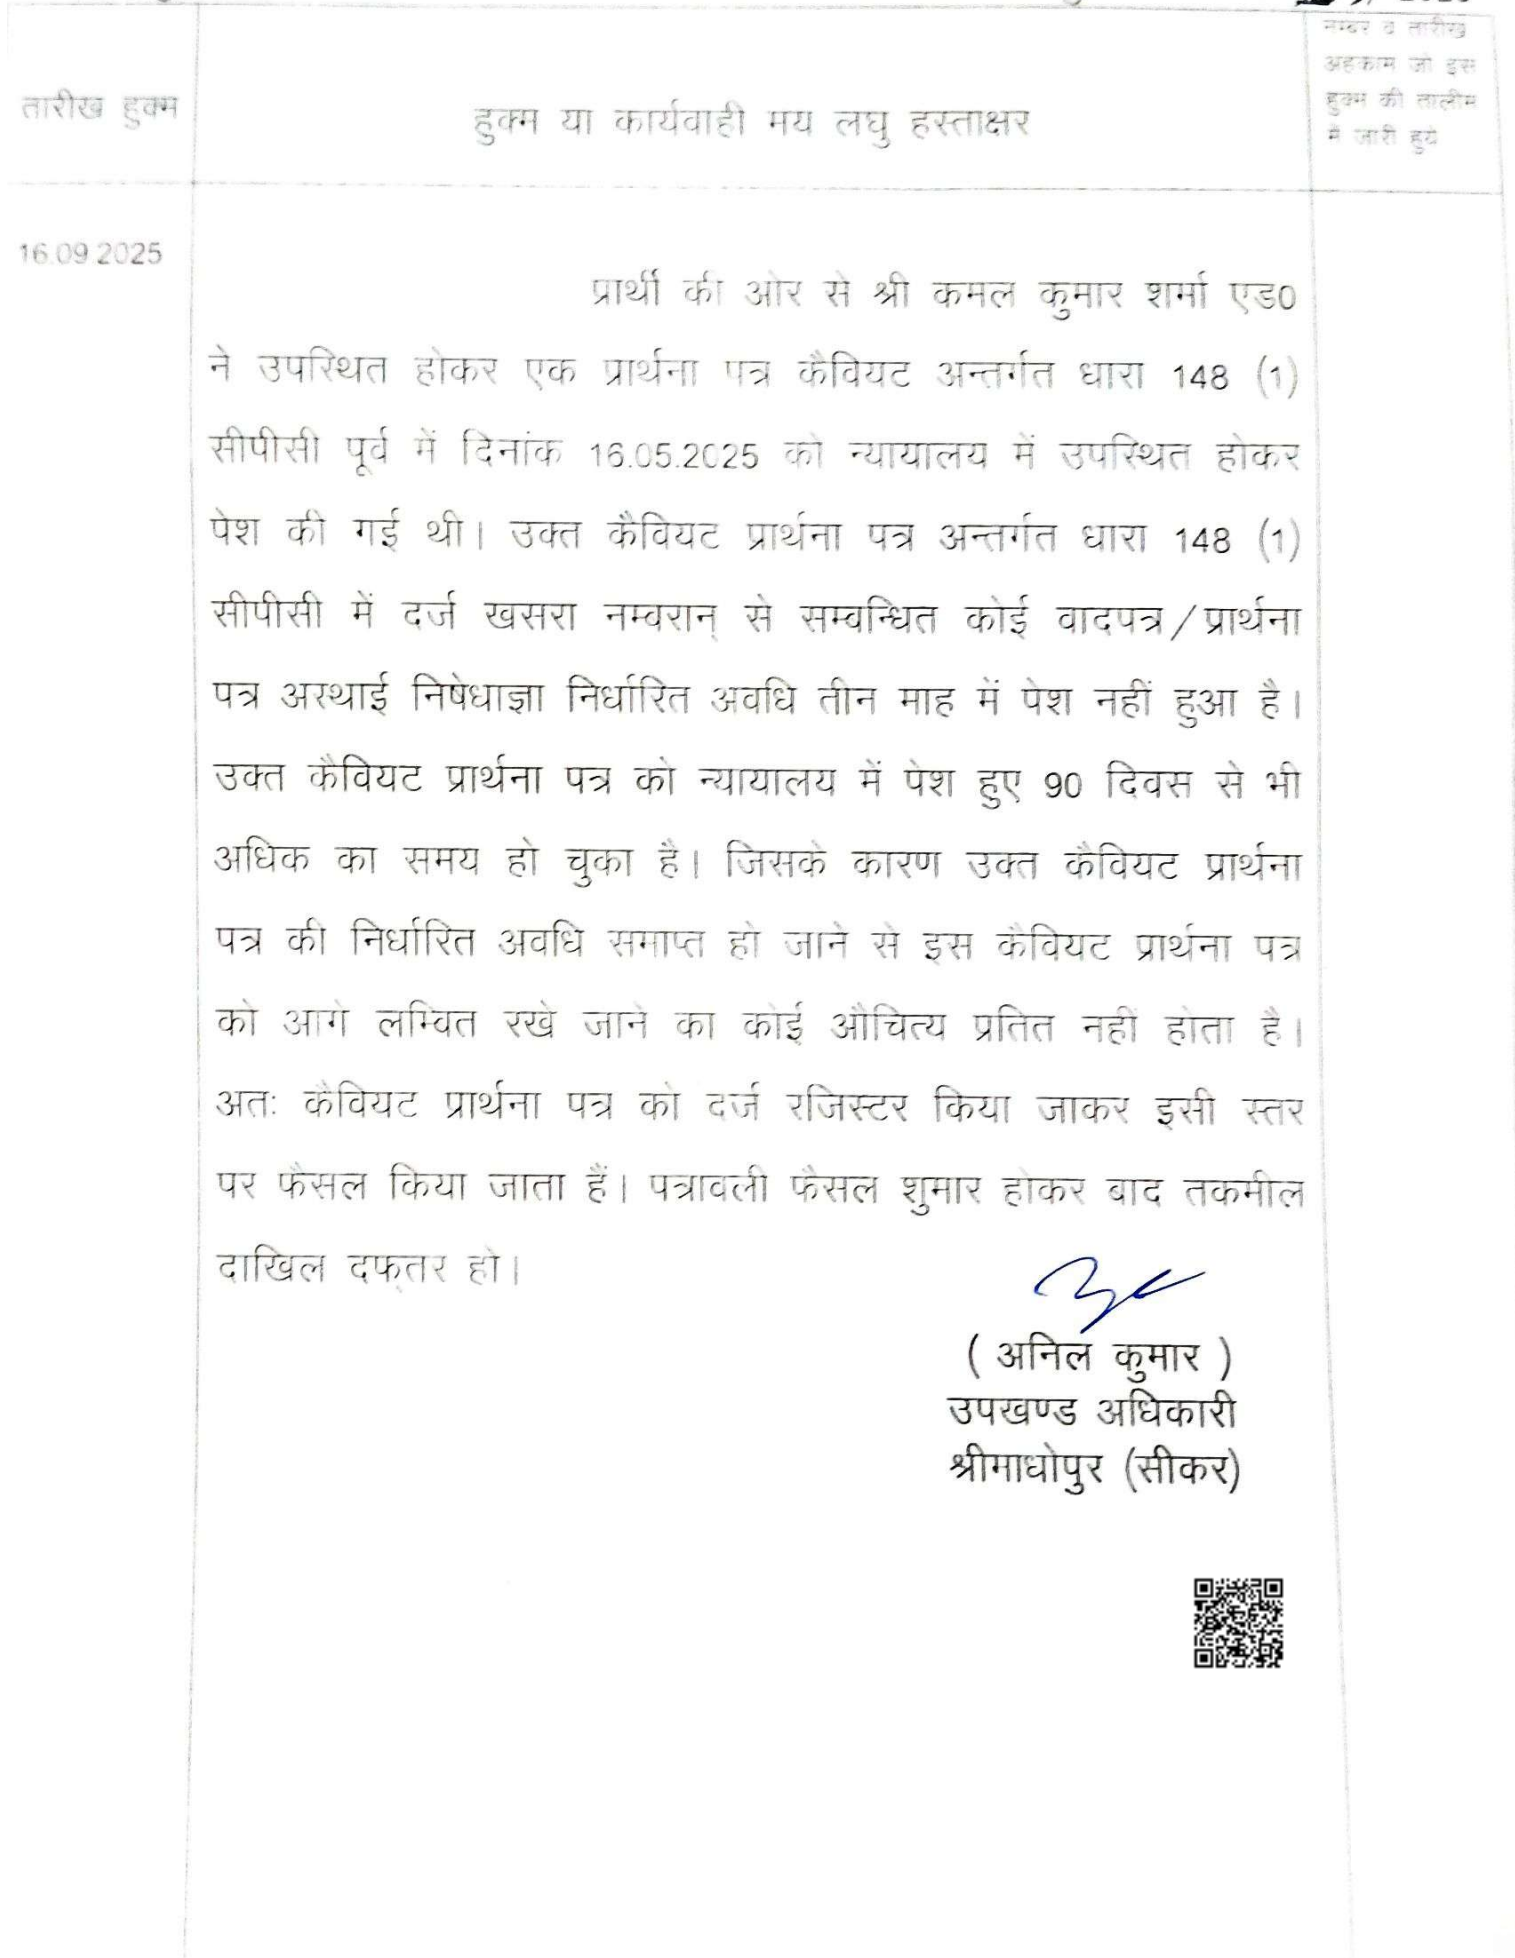 नम्बर व तारीख
अहकाम जो इस
हुक्म की तालीम
में जारी हुये
तारीख हुक्म
हुक्म या कार्यवाही मय लघु हस्ताक्षर
16.09.2025
प्रार्थी की ओर से श्री कमल कुमार शर्मा एड0
ने उपस्थित होकर एक प्रार्थना पत्र कैवियट अन्तर्गत धारा 148 (1)
सीपीसी पूर्व में दिनांक 16.05.2025 को न्यायालय में उपस्थित होकर
पेश की गई थी। उक्त कैवियट प्रार्थना पत्र अन्तर्गत धारा 148 (1)
सीपीसी में दर्ज खसरा नम्वरान् से सम्वन्धित कोई वादपत्र/प्रार्थना
पत्र अस्थाई निषेधाज्ञा निर्धारित अवधि तीन माह में पेश नहीं हुआ है।
उक्त कैवियट प्रार्थना पत्र को न्यायालय में पेश हुए 90 दिवस से भी
अधिक का समय हो चुका है। जिसके कारण उक्त कैवियट प्रार्थना
पत्र की निर्धारित अवधि समाप्त हो जाने से इस कैवियट प्रार्थना पत्र
को आगे लम्वित रखे जाने का कोई औचित्य प्रतित नहीं होता है।
अतः कैवियट प्रार्थना पत्र को दर्ज रजिस्टर किया जाकर इसी स्तर
पर फैसल किया जाता हैं। पत्रावली फैसल शुमार होकर बाद तकमील
दाखिल दफ्तर हो।
( अनिल कुमार )
उपखण्ड अधिकारी
श्रीमाधोपुर (सीकर)